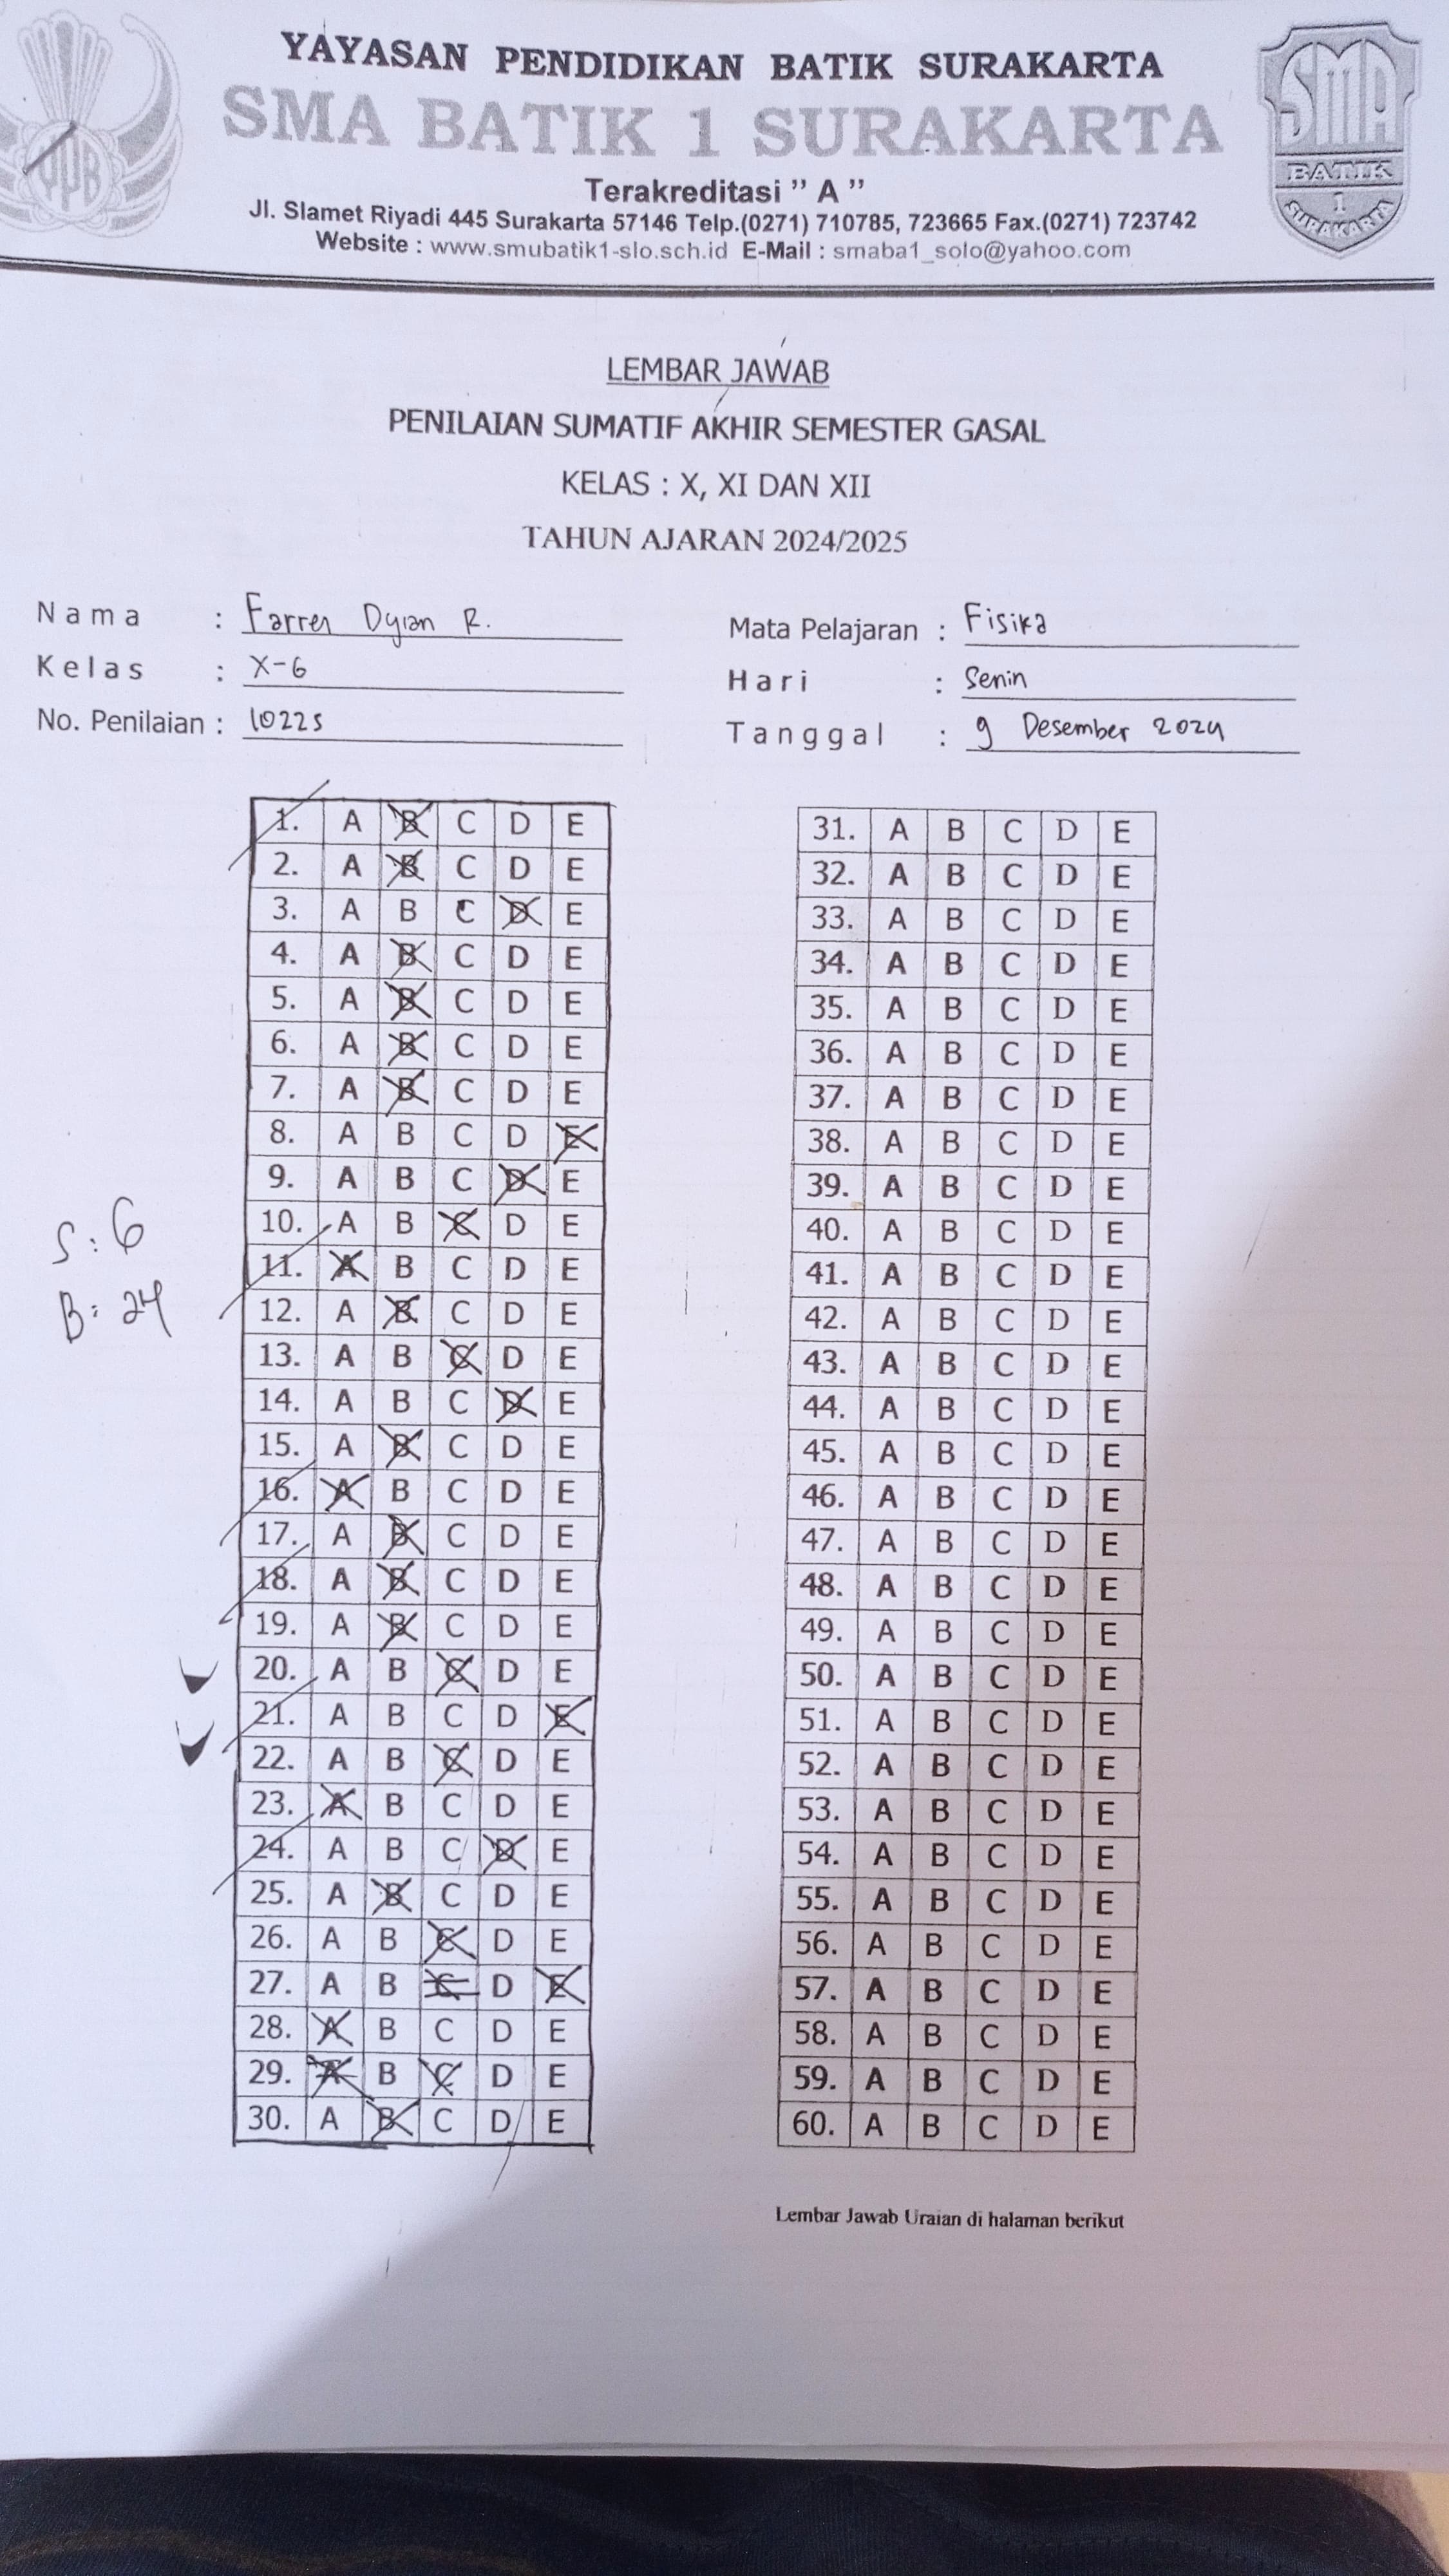 YAYASAN PENDIDIKAN BATIK SURAKARTA
SMA BATIK 1 SURAKARTA
Terakreditasi " A "
Jl. Slamet Riyadi 445 Surakarta 57146 Telp.(0271) 710785, 723665 Fax.(0271) 723742
Website : www.smubatik1-slo.sch.id E-Mail : smaba1_solo@yahoo.com
YPB
SMA
BATIK
1
SURAKARTA
LEMBAR JAWAB
PENILAIAN SUMATIF AKHIR SEMESTER GASAL
KELAS : X, XI DAN XII
TAHUN AJARAN 2024/2025
Nama : Farrer Dyian R.
Kelas : X-6
No. Penilaian : 10225
Mata Pelajaran : Fisika
Hari : Senin
Tanggal : 9 Desember 2024
S : 6
B : 24
1. A B C D E
2. A B C D E
3. A B C D E
4. A B C D E
5. A B C D E
6. A B C D E
7. A B C D E
8. A B C D E
9. A B C D E
10. A B C D E
11. A B C D E
12. A B C D E
13. A B C D E
14. A B C D E
15. A B C D E
16. A B C D E
17. A B C D E
18. A B C D E
19. A B C D E
20. A B C D E
21. A B C D E
22. A B C D E
23. A B C D E
24. A B C D E
25. A B C D E
26. A B C D E
27. A B C D E
28. A B C D E
29. A B C D E
30. A B C D E
31. A B C D E
32. A B C D E
33. A B C D E
34. A B C D E
35. A B C D E
36. A B C D E
37. A B C D E
38. A B C D E
39. A B C D E
40. A B C D E
41. A B C D E
42. A B C D E
43. A B C D E
44. A B C D E
45. A B C D E
46. A B C D E
47. A B C D E
48. A B C D E
49. A B C D E
50. A B C D E
51. A B C D E
52. A B C D E
53. A B C D E
54. A B C D E
55. A B C D E
56. A B C D E
57. A B C D E
58. A B C D E
59. A B C D E
60. A B C D E
Lembar Jawab Uraian di halaman berikut